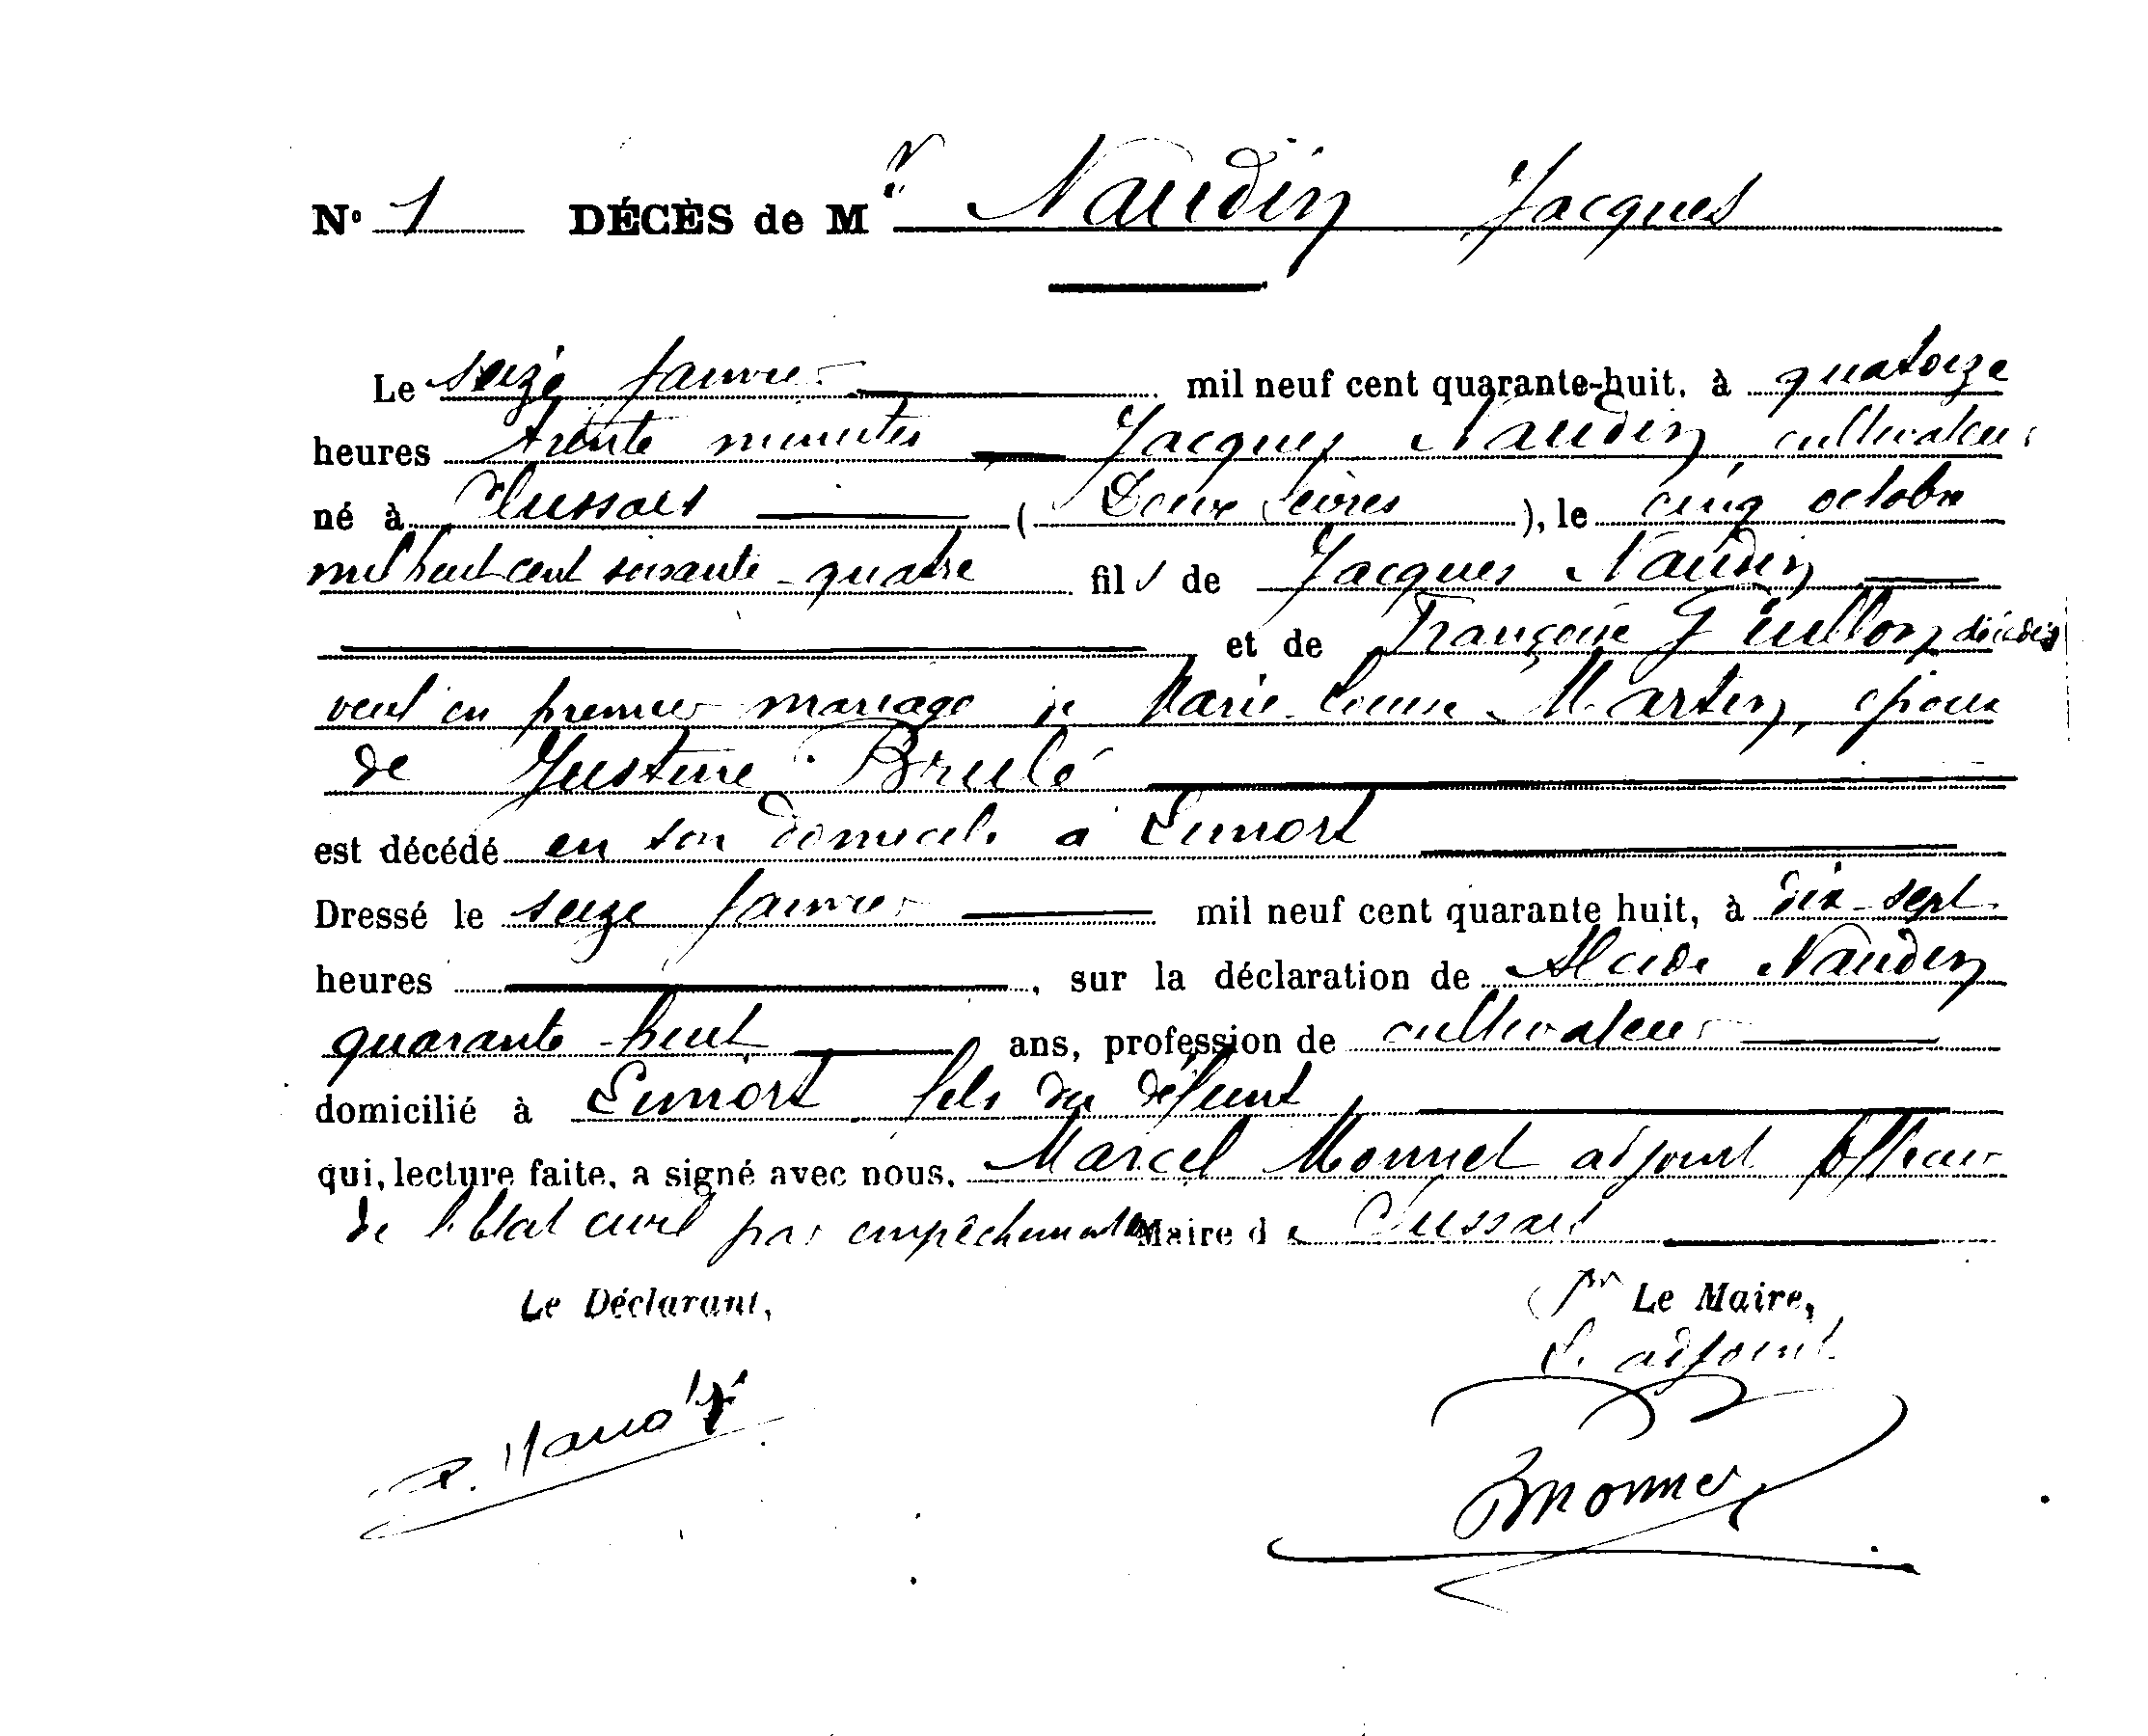 N° 1 DÉCÈS de Mr Naudin Jacques
Le seize janvier mil neuf cent quarante-huit, à quatorze
heures trente minutes Jacques Naudin, cultivateur
né à Clussais (Deux Sèvres), le cinq octobre
mil huit cent soixante-quatre fils de Jacques Naudin
et de Françoise Guillon décédés
veuf en premier mariage de Marie-Louise Martin, époux
de Justine Brulé
est décédé en son domicile à Eimort
Dressé le seize janvier mil neuf cent quarante huit, à dix-sept
heures, sur la déclaration de Alcide Naudin
quarante-huit ans, profession de cultivateur
domicilié à Eimort fils du défunt
qui, lecture faite, a signé avec nous, Marcel Monnet adjoint Officier
de l'Etat civil par empêchement du Maire de Clussais
Le Déclarant, pr Le Maire,
L'adjoint
A. Naudin
Monnet